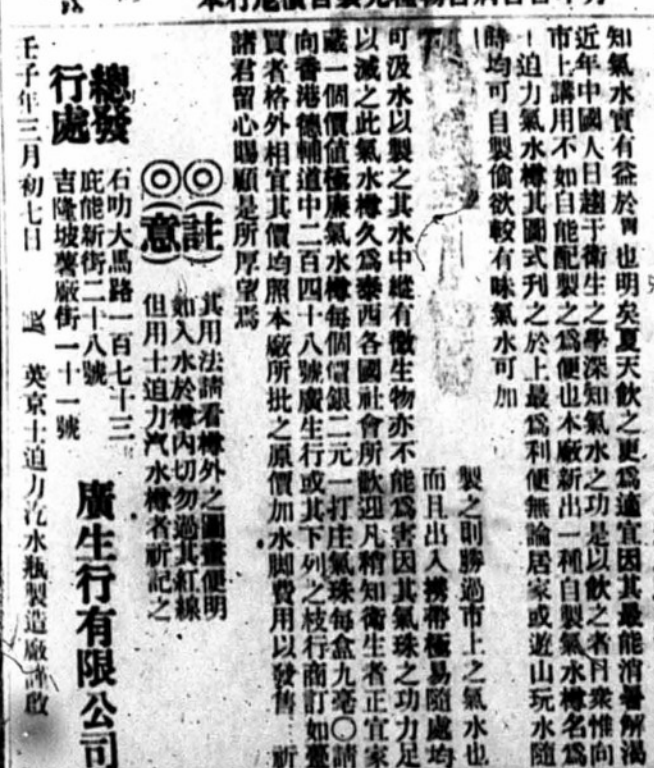 知氣水實有益於 也明矣夏天飲之更爲適宜因其最能消暑解渴
近年中國人日趨于衛生之學深知氣水之功是以飲之者日衆惟向
市上購用不如自能配製之爲便也本廠新出一種自製氣水樽名爲
士迫力氣水樽其圖式刋之於上最爲利便無論居家或遊山玩水隨
時均可自製倘欲較有味氣水可加
製之則勝過市上之氣水也
而且出入攜帶極易隨處均
可汲水以製之其水中縱有微生物亦不能爲害因其氣珠之功力足
以滅之此氣水樽久爲泰西各國社會所歡迎凡稍知衛生者正宜家
藏一個價值極廉氣水樽每個價銀二元一打庄氣珠每盒九毫〇請
向香港德輔道中二百四十八號廣生行或其下列之枝行商訂如躉
買者格外相宜其價均照本廠所批之原價加水脚費用以發售 祈
諸君留心賜顧是所厚望焉
◎◎(註意)
其用法請看樽外之圖畫便明
如入水於樽內切勿過其紅線
但用士迫力汽水樽者祈記之
總發行處
石叻大馬路一百七十三
庇能新街二十八號
吉隆坡薯廠街一十一號
廣生行有限公司
壬子年三月初七日 英京士迫力汽水瓶製造廠謹啟